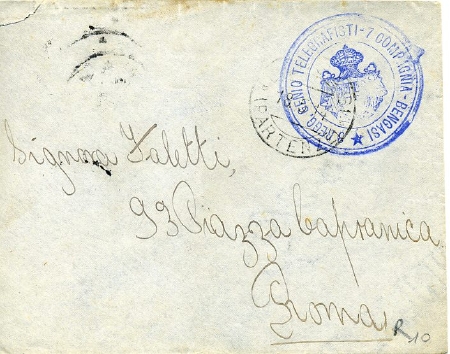 3 REGG. GENIO TELEGRAFISTI - 7 COMPAGNIA - BENGASI
Signora Faletti,
93 Piazza Capranica
Roma
R 10